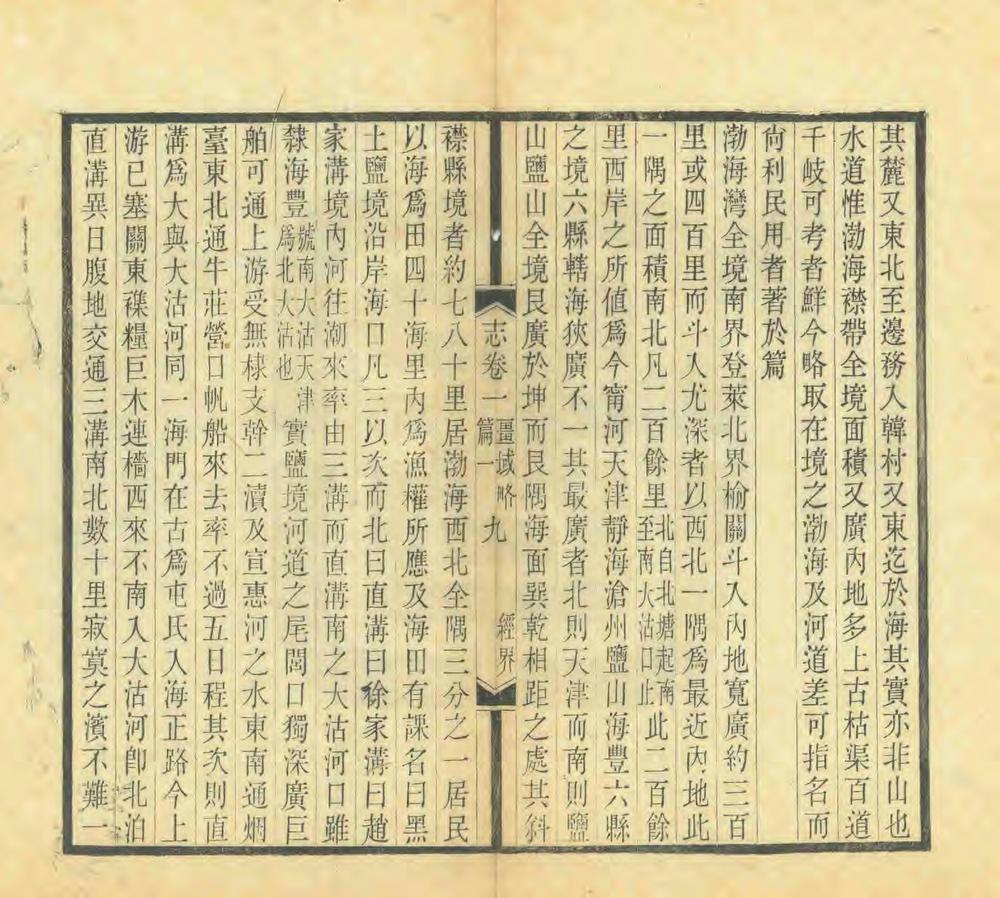 其麓又東北至邊務入韓村又東迄於海其實亦非山也
水道惟渤海襟帶全境面積又廣內地多上古枯渠百道
千岐可考者鮮今略取在境之渤海及河道差可指名而
尙利民用者著於篇
渤海灣全境南界登萊北界榆關斗入內地寬廣約三百
里或四百里而斗入尤深者以西北一隅爲最近內地此
一隅之面積南北凡二百餘里北自北塘起南至南大沽口止此二百餘
里西岸之所值爲今甯河天津靜海滄州鹽山海豐六縣
之境六縣轄海狹廣不一其最廣者北則天津而南則鹽
山鹽山全境艮廣於坤而艮隅海面巽乾相距之處其斜
志卷一 疆域略篇一 九 經界
襟縣境者約七八十里居渤海西北全隅三分之一居民
以海爲田四十海里內爲漁權所應及海田有課名曰黑
土鹽境沿岸海口凡三以次而北曰直溝曰徐家溝曰趙
家溝境內河往潮來率由三溝而直溝南之大沽河口雖
隸海豐號南大沽天津爲北大沽也實鹽境河道之尾閭口獨深廣巨
舶可通上游受無棣支幹二瀆及宣惠河之水東南通烟
臺東北通牛莊營口帆船來去率不過五日程其次則直
溝爲大與大沽河同一海門在古爲屯氏入海正路今上
游已塞關東襍糧巨木連檣西來不南入大沽河卽北泊
直溝異日腹地交通三溝南北數十里寂寞之濱不難一